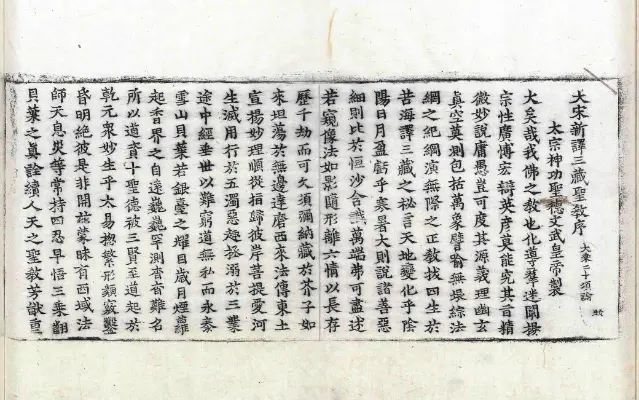 大宋新譯三藏聖教序 大乘二十頌論
太宗神功聖德文武皇帝製
大矣哉我佛之教也化導群迷闡揚
宗性廣博宏辯英彥莫能究其言精
微妙說庸愚豈可度其源義理幽玄
真空莫測包括萬象譬喻無垠綜法
網之紀綱演無際之正教拔四生於
苦海譯三藏之秘言天地變化乎陰
陽日月盈虧乎寒暑大則說諸善惡
細則比於恒沙含識萬端弗可盡述
若窺像法如影隨形離六情以長存
歷千劫而可久須彌納藏於芥子如
來坦蕩於無邊達磨西來法傳東土
宣揚妙理順從指歸彼岸菩提愛河
生滅用行於五濁惡趣拯溺於三業
途中經垂世以難窮道無私而永泰
雪山貝葉若銀臺之耀目歲月煙蘿
起香界之自遠巍巍罕測杳杳難名
所以道資十聖德被三賢至道起於
乾元眾妙生乎太易揔繁形類竅鑿
昏明絕彼是非開茲蒙昧有西域法
師天息災等常持四忍早悟三乘翻
貝葉之真詮續人天之聖教芳猷重